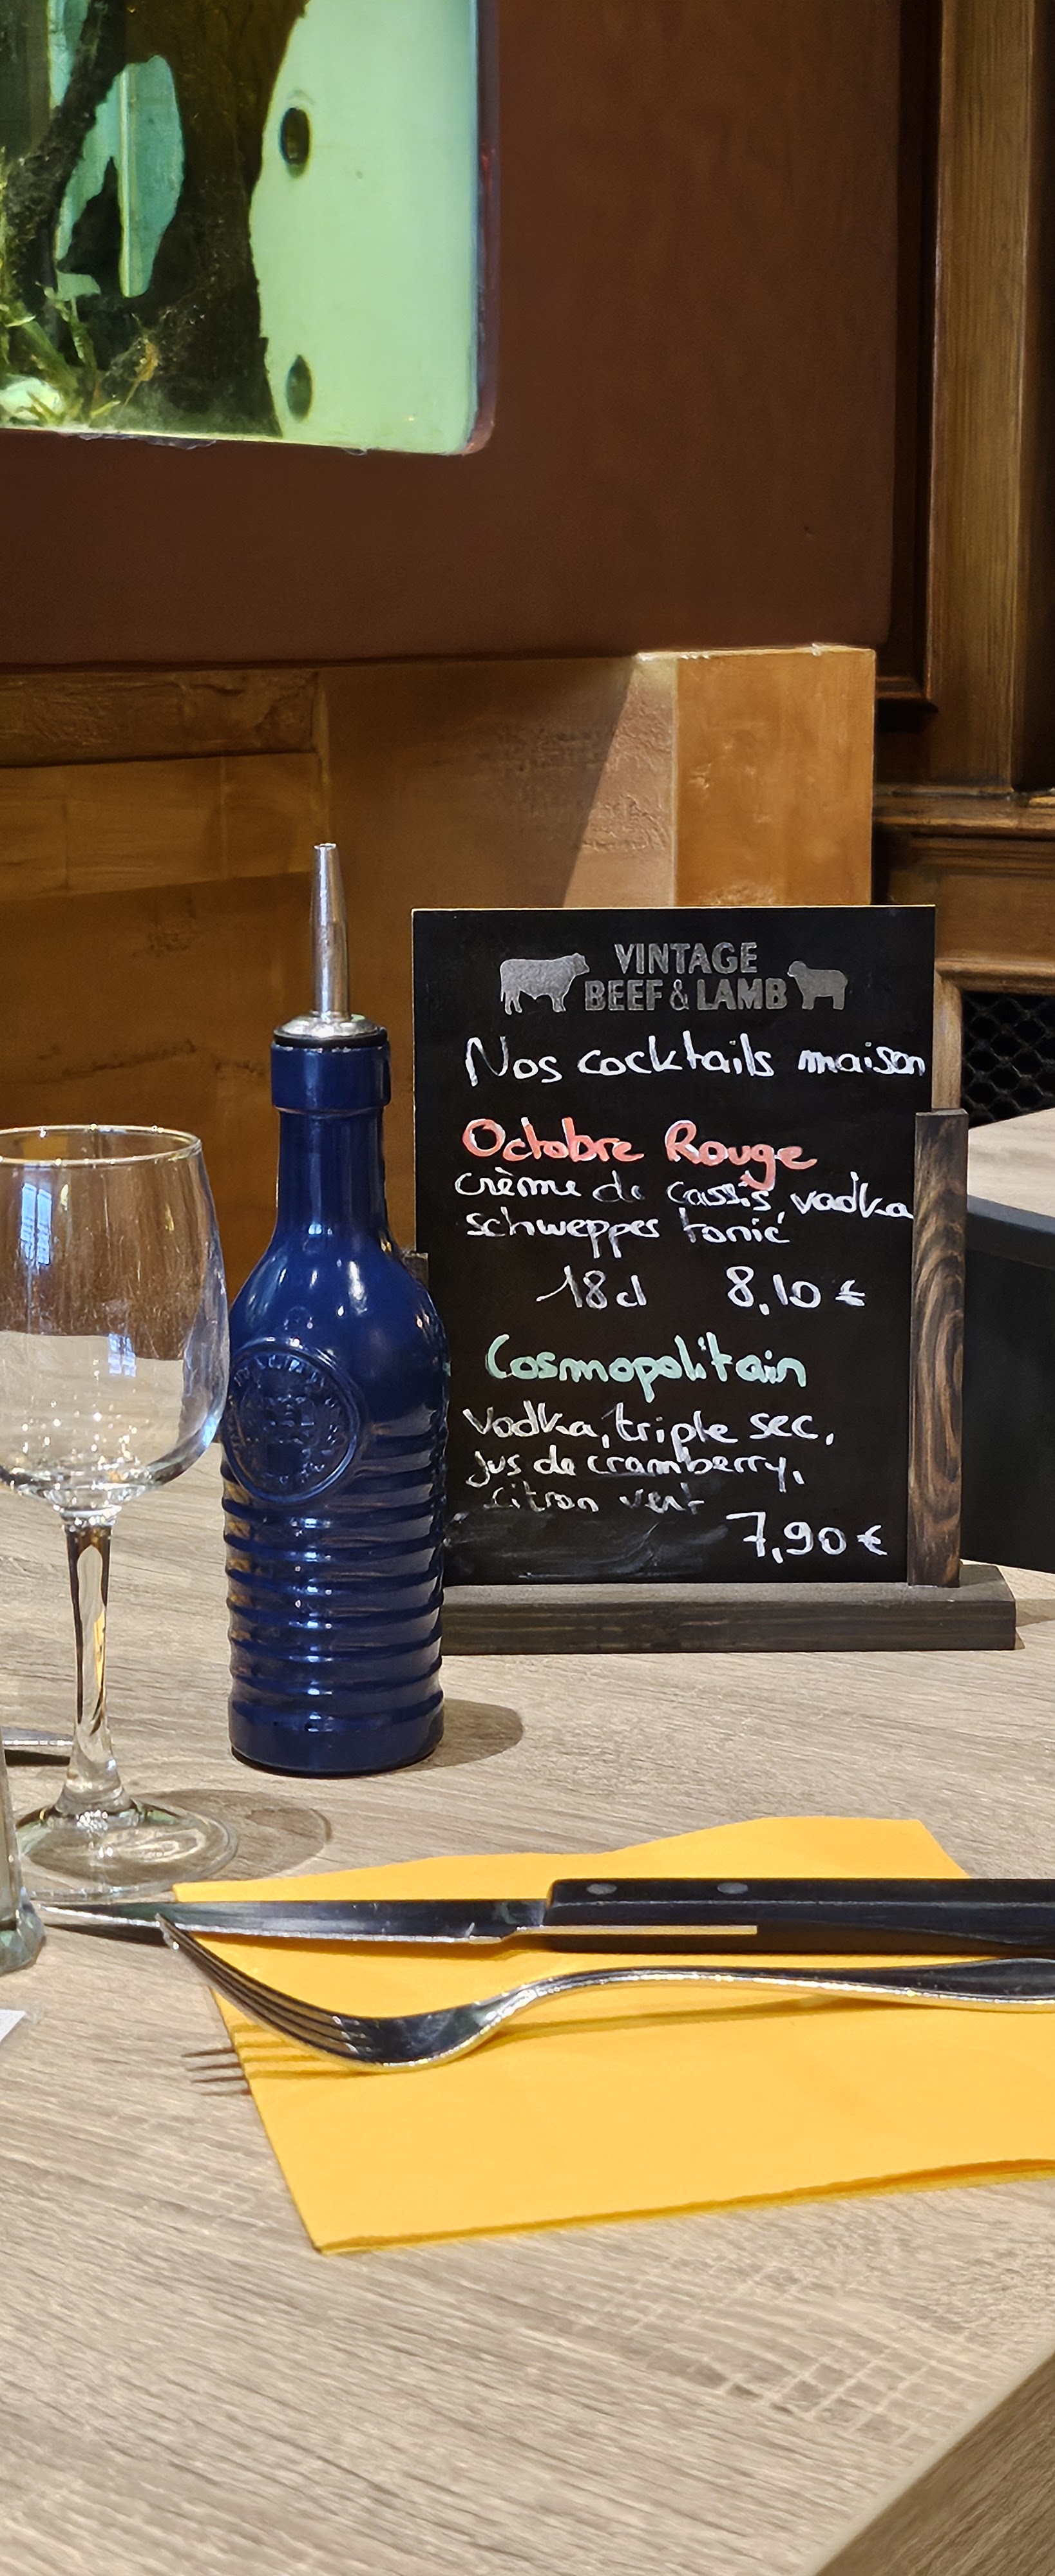 VINTAGE
BEEF & LAMB
Nos cocktails maison
Octobre Rouge
crème de cassis, vodka
schweppes tonic
18cl 8,10 €
Cosmopolitain
Vodka, triple sec,
jus de cramberry,
citron vert
7,90 €